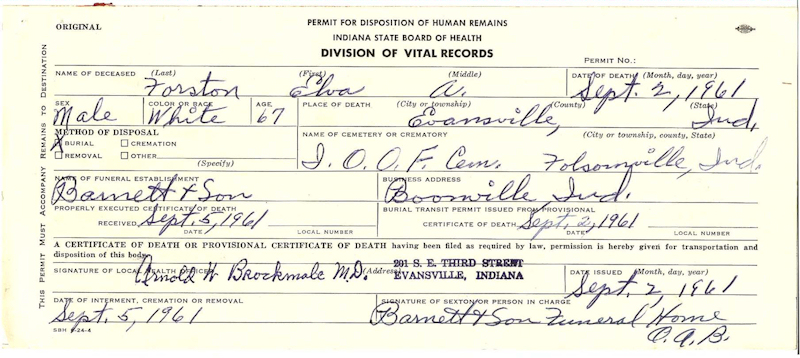 ORIGINAL
PERMIT FOR DISPOSITION OF HUMAN REMAINS
INDIANA STATE BOARD OF HEALTH
DIVISION OF VITAL RECORDS
PERMIT NO.:
THIS PERMIT MUST ACCOMPANY REMAINS TO DESTINATION
NAME OF DECEASED (Last) (First) (Middle) DATE OF DEATH (Month, day, year)
Forston Elva A. Sept. 2, 1961
SEX COLOR OR RACE AGE PLACE OF DEATH (City or township) (County) (State)
Male White 67 Evansville, Ind.
METHOD OF DISPOSAL NAME OF CEMETERY OR CREMATORY (City or township, county, State)
X BURIAL CREMATION
REMOVAL OTHER
(Specify)
I.O.O.F. Cem. Folsomville, Ind.
NAME OF FUNERAL ESTABLISHMENT BUSINESS ADDRESS
Barnett & Son Boonville, Ind.
PROPERLY EXECUTED CERTIFICATE OF DEATH BURIAL TRANSIT PERMIT ISSUED FROM PROVISIONAL
RECEIVED Sept. 5, 1961 CERTIFICATE OF DEATH Sept. 2, 1961
DATE LOCAL NUMBER DATE LOCAL NUMBER
A CERTIFICATE OF DEATH OR PROVISIONAL CERTIFICATE OF DEATH having been filed as required by law, permission is hereby given for transportation and
disposition of this body.
SIGNATURE OF LOCAL HEALTH OFFICER (Address) DATE ISSUED (Month, day, year)
Arnold W Brockmole M.D. 201 S. E. THIRD STREET
EVANSVILLE, INDIANA
Sept. 2, 1961
DATE OF INTERMENT, CREMATION OR REMOVAL SIGNATURE OF SEXTON OR PERSON IN CHARGE
Sept. 5, 1961 Barnett & Son Funeral Home
O.A.B.
SBH 6-24-4